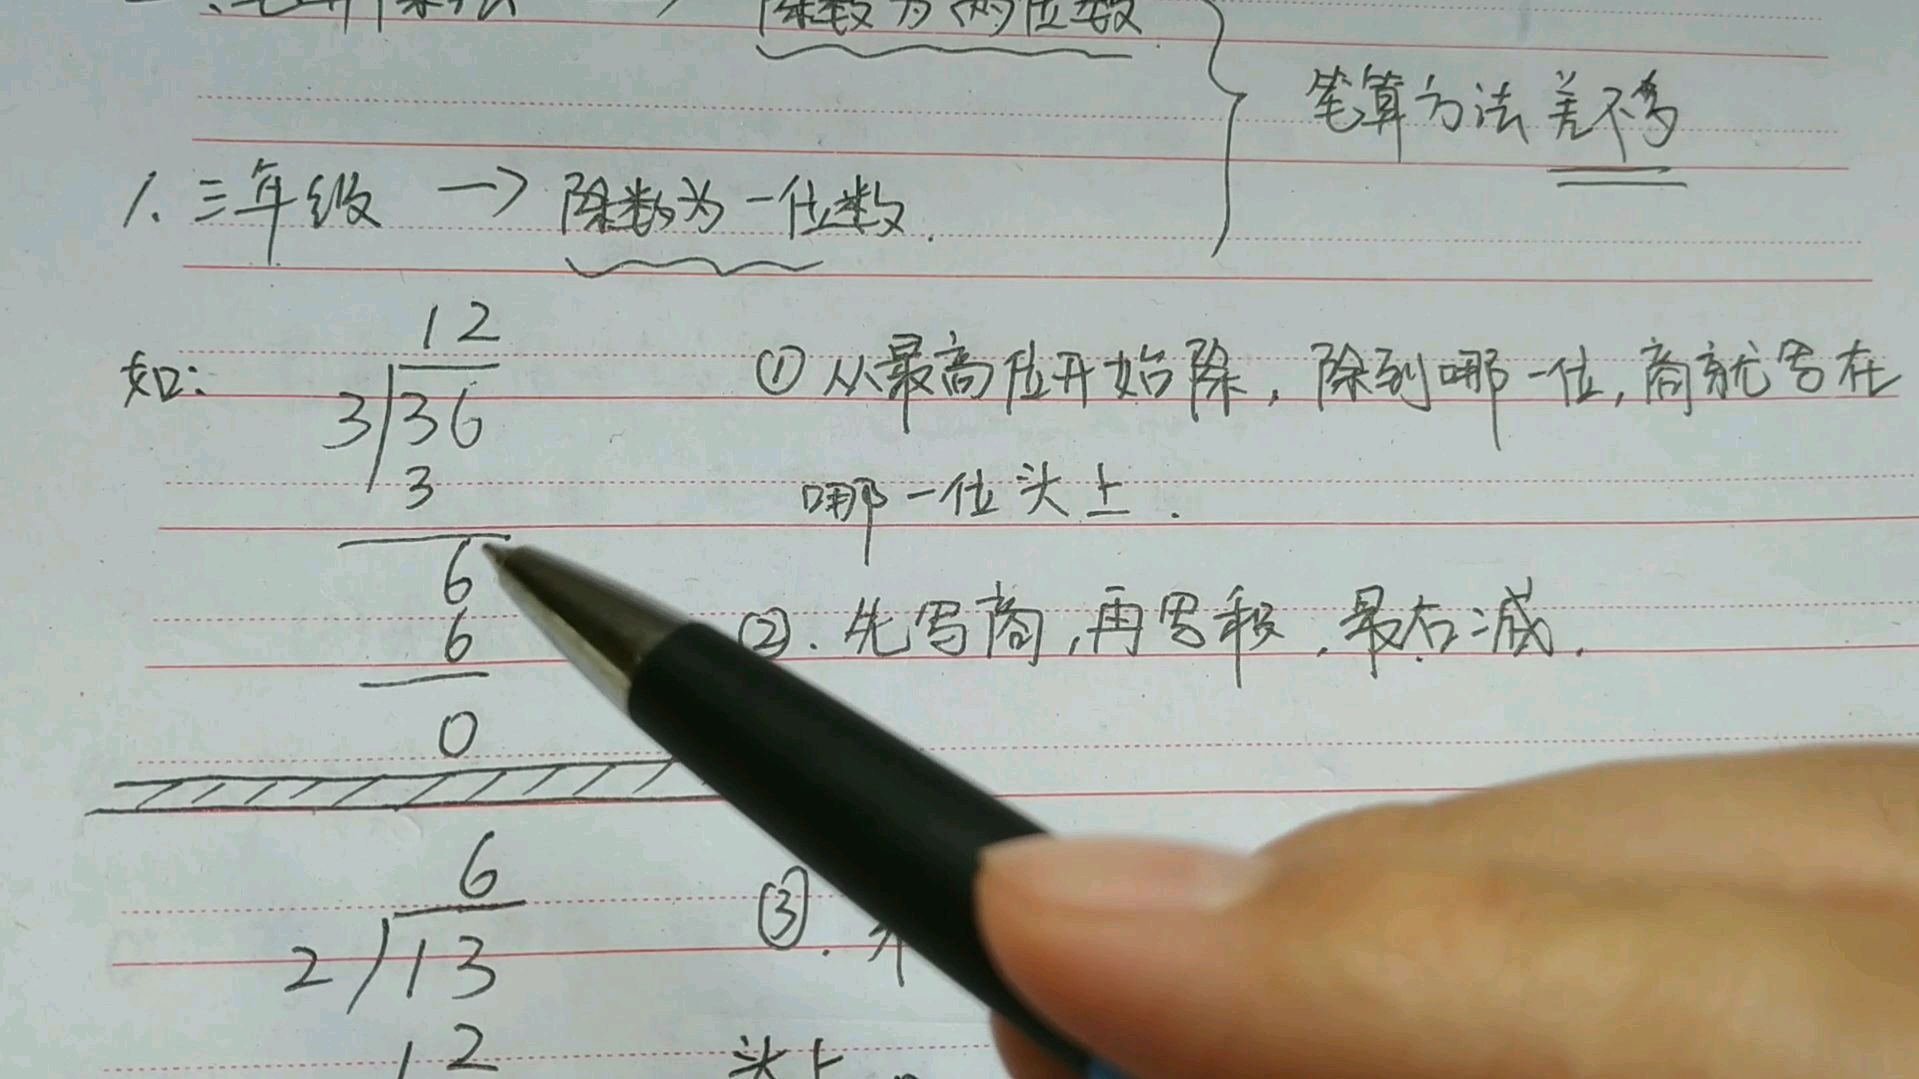 除数为两位数
笔算方法差不多
1. 三年级 → 除数为一位数.
如:
12
3 36
3
6
6
0
① 从最高位开始除, 除到哪一位, 商就写在
哪一位头上.
②. 先写商, 再写积, 最右减.
6
2 13
12
③.
头上